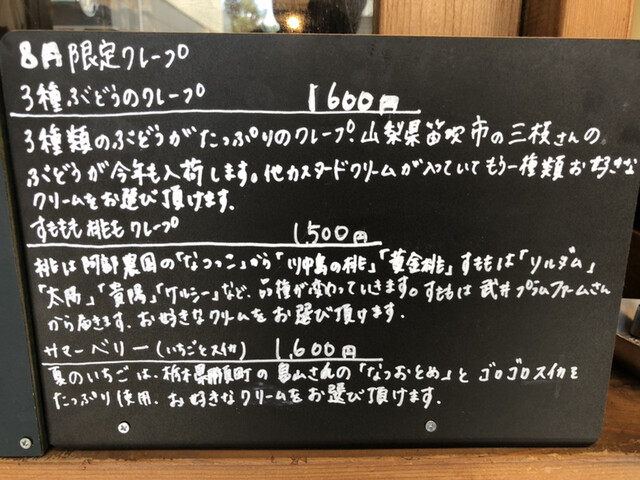 8月限定クレープ
3種ぶどうのクレープ 1600円
3種類のぶどうがたっぷりのクレープ.山梨県笛吹市の三枝さんの
ぶどうが今年も入荷します。他カスタードクリームが入っていてもう一種類お好きな
クリームをお選び頂けます.
すももも桃も クレープ 1,500円
桃は阿部農園の「なつっこ」から「川中島の桃」「黄金桃」すももは「ソルダム」
「太陽」「貴陽」「ケルシー」など、品種が変わっていきます。すももは 武井プラムファームさん
から届きます. お好きなクリームをお選び頂けます.
サマーベリー(いちごとスイカ) 1,600円
夏のいちごは、栃木県那須町の畠山さんの「なつおとめ」とゴロゴロスイカを
たっぷり使用. お好きなクリームをお選び頂けます.